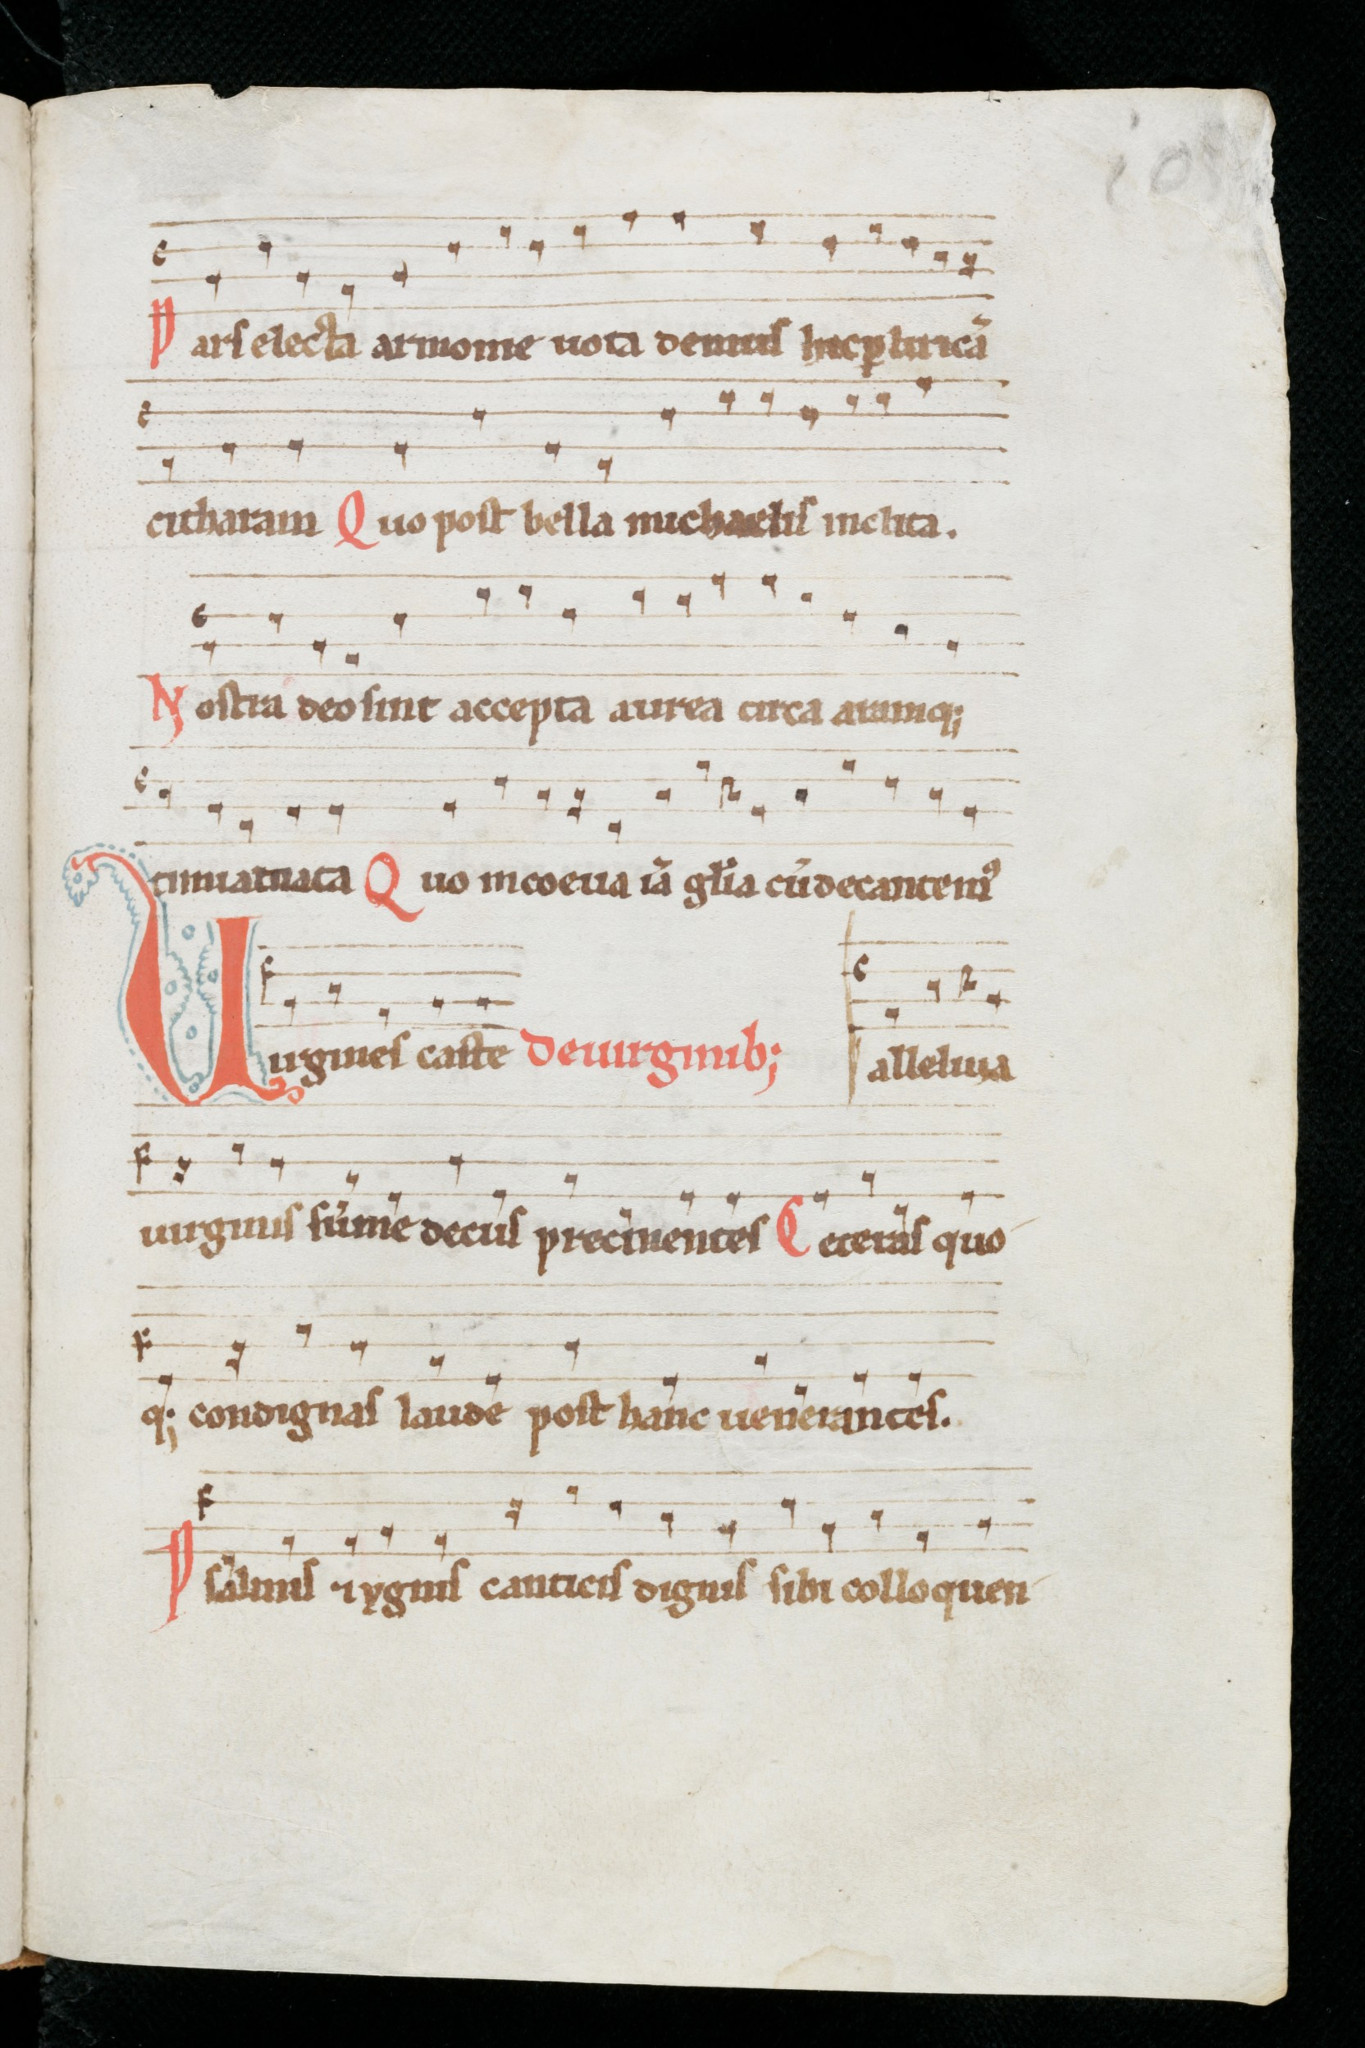 Pars electa armonie uota demus hac p liricā
citharam Quo post bella michaelis inclita.
Nostra deo sint accepta aurea circa aramq;
timiamata Quo in coeua iā glia cū decantemꝰ
Uirgines caste De uirginib; alleluia
uirginis sūme decus precinentes Ceteras quo
q; condignas laude post hanc uenerantes.
Psalmis ygnis canticis dignis sibi colloquen